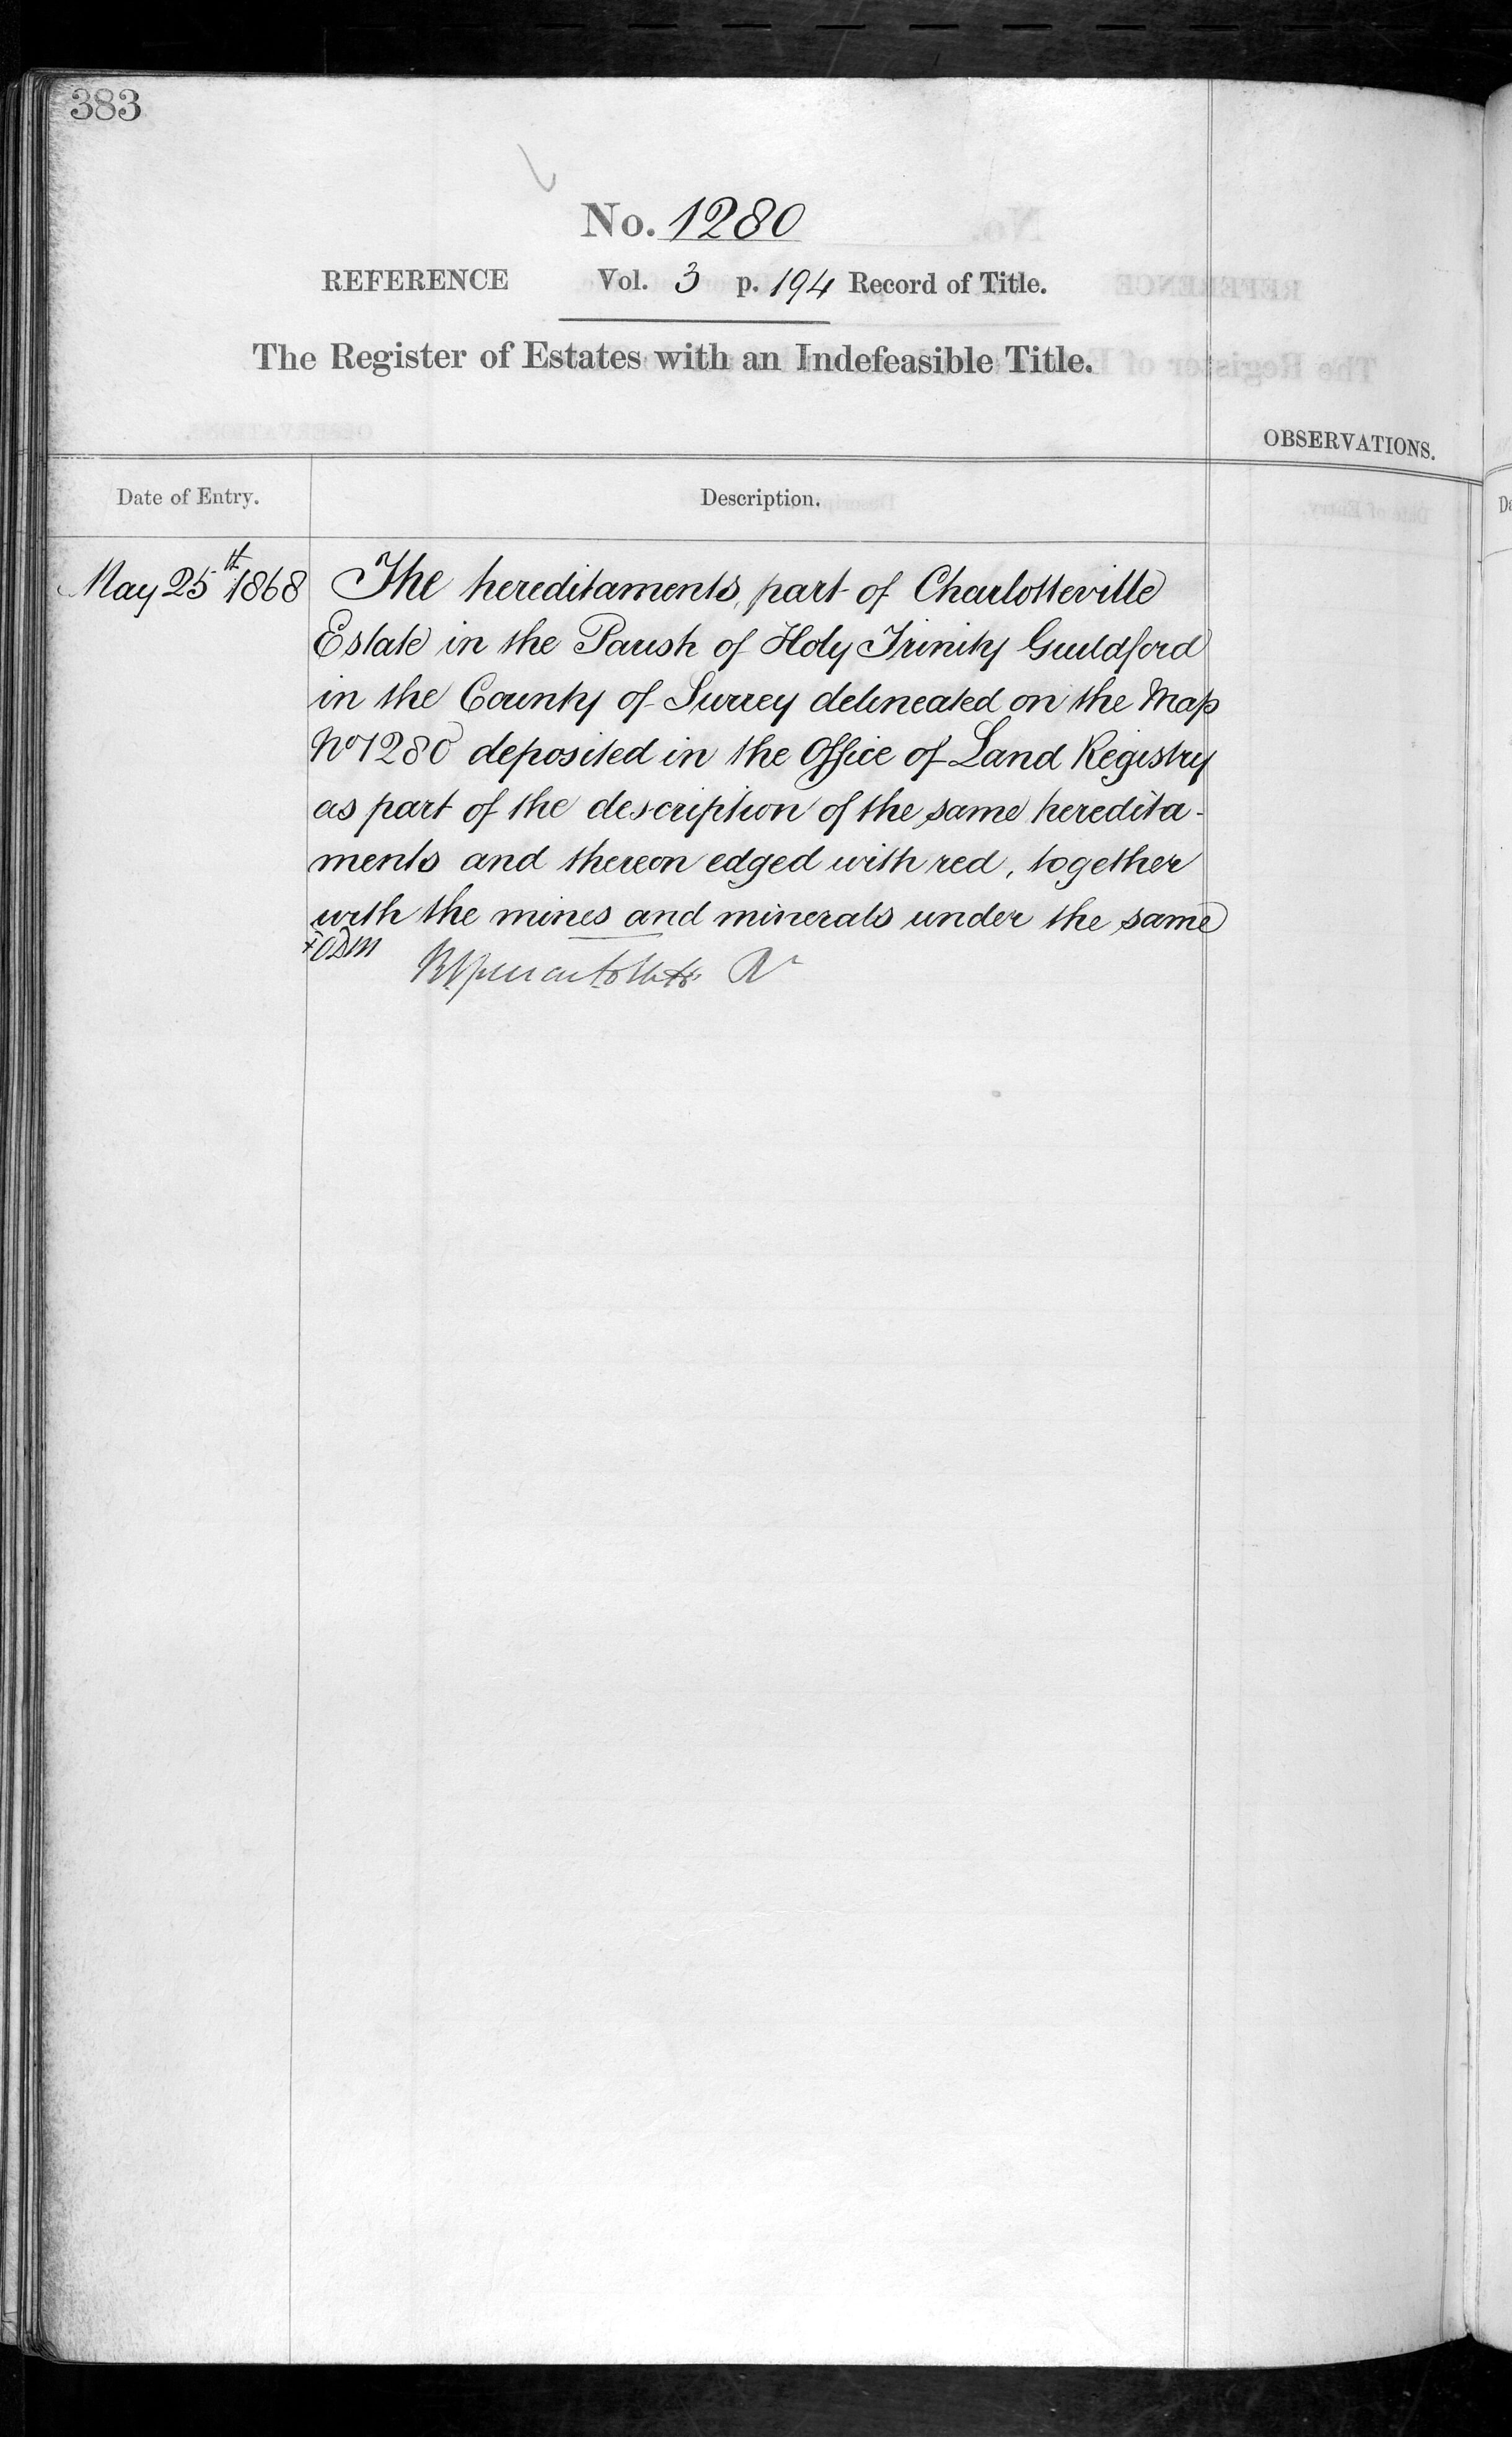 383
No. 1280
REFERENCE Vol. 3 p. 194 Record of Title.
The Register of Estates with an Indefeasible Title.
OBSERVATIONS.
Date of Entry. Description.
May 25th 1868 The hereditaments, part of Charlotteville
Estate in the Parish of Holy Trinity Guildford
in the County of Surrey delineated on the Map
No 1280 deposited in the Office of Land Registry
as part of the description of the same heredita-
ments and thereon edged with red, together
with the mines and minerals under the same